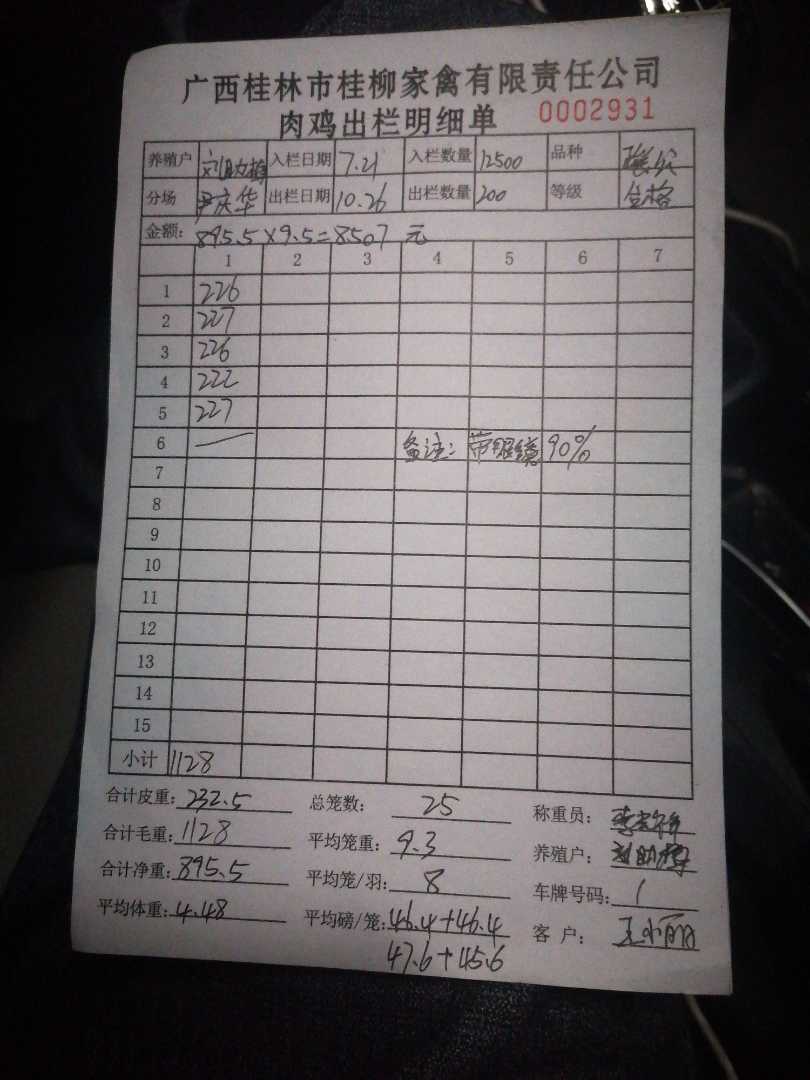 广西桂林市桂柳家禽有限责任公司
肉鸡出栏明细单 0002931
养殖户 入栏日期 7.21 入栏数量 12500 品种
分场 尹庆华 出栏日期 10.26 出栏数量 200 等级 合格
金额: 895.5×9.5=8507 元
1 2 3 4 5 6 7
1 226
2 227
3 226
4 222
5 227
6 — 备注: 带眼镜 90%
7
8
9
10
11
12
13
14
15
小计 1128
合计皮重: 232.5 总笼数: 25 称重员:
合计毛重: 1128 平均笼重: 9.3 养殖户:
合计净重: 895.5 平均笼/羽: 8 车牌号码: 1
平均体重: 4.48 平均磅/笼: 46.4+46.4 客户: 王小丽
47.6+45.6